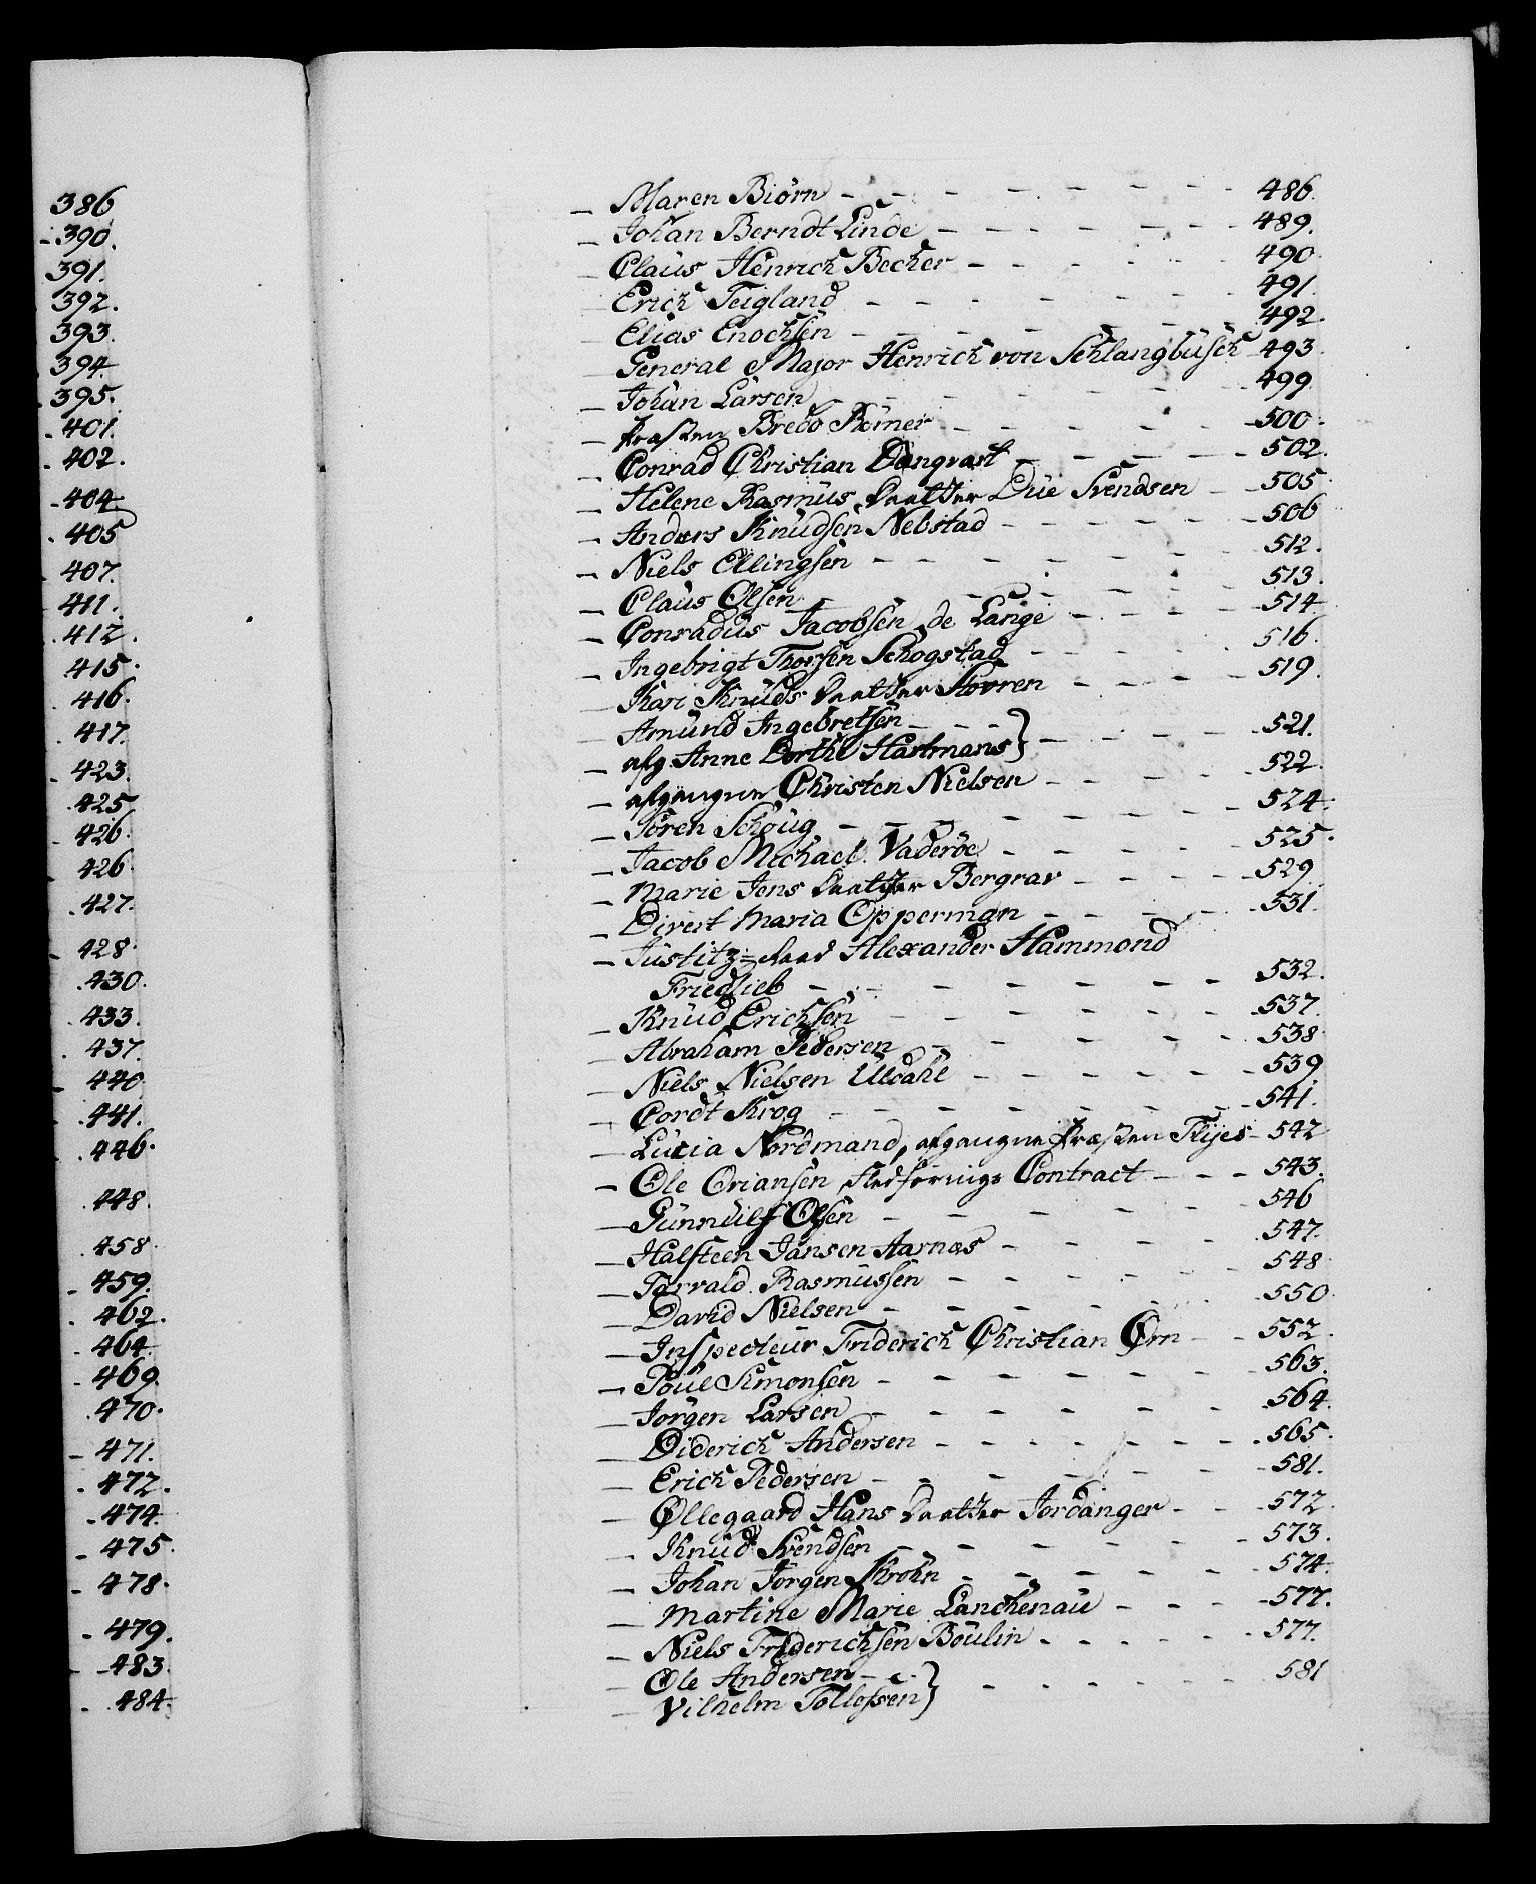 386
- 390.
391.
392.
393.
394.
395.
- 401.
- 402.
- 404.
. 405
407.
411.
. 412.
415.
416.
417.
. 423.
. 425.
426.
426.
. 427.
428.
. 430.
433.
. 437.
440.
. 441.
. 446.
448.
. 458.
- 459.
. 462.
- 464.
- 469.
. 470.
- 471.
- 472.
- 474.
- 475.
- 478.
- 479.
- 483.
- 484.
— Maren Biörn - - - - - - - 486.
— Johan Berndt Linde - - - - - - 489.
— Claus Henrich Becher - - - - - 490.
— Erich Teigland - - - - - - 491.
— Elias Enochsen - - - - - - 492.
— General Major Henrich von Schlangbusch - 493.
— Johan Larsen - - - - - - 499.
— Præsten Bredo Römer - - - - - 500.
— Conrad Christian Dangvart - - - - 502.
— Helene Rasmus Daatter Due Svendsen - - 505.
— Anders Knudsen Nebstad - - - - - 506
— Niels Ellingsen - - - - - - 512.
— Claus Olsen - - - - - - 513.
— Conradus Jacobsen de Lange - - - - 514
— Ingebrigt Thorsen Schogstad - - - - 516.
— Kari Knuds Daatter Hovren - - - - 519.
— Amund Ingebretsen - - -
— afg Anne Dorthe Hartmans} - - - - - 521.
— afgangne Christen Nielsen - - - - 522.
— Sören Schoug - - - - - - 524.
— Jacob Michael Vaderöe - - - - - 525.
— Marie Jens Daatter Bergrav - - - - 529.
— Divert Maria Opperman - - - - - 531.
— Justitz-Raad Alexander Hammond
Friedlieb - - - - - - - 532.
— Knud Erichsen - - - - - - 537.
— Abraham Pedersen - - - - - - 538.
— Niels Nielsen Uldahl - - - - - 539
— Cordt Krog - - - - - - - 541.
— Lucia Nordmand, afgangne Præsten Thyes - 542
— Ole Oriansen Fledförings Contract - - - 543.
— Gunnulf Olsen - - - - - - 546
— Halfteen Jansen Aarnæs - - - - - 547.
— Torvald Rasmussen - - - - - - 548
— David Nielsen - - - - - - 550.
— Inspecteur Friderich Christian Örn - - 552.
— Poul Simonsen - - - - - - 563.
— Jörgen Larsen - - - - - - 564.
— Diderich Andersen - - - - - - 565.
— Erich Pedersen - - - - - - 581.
— Öllegaard Hans Daatter Jordanger - - - 572.
— Knud Svendsen - - - - - - 573.
— Johan Jörgen Krohn - - - - - - 574.
— Martine Marie Lanchenau - - - - 577.
— Niels Friderichsen Boulin - - - - - 577.
— Ole Andersen - -
— Vilhelm Tollofsen} - - - - - - 581